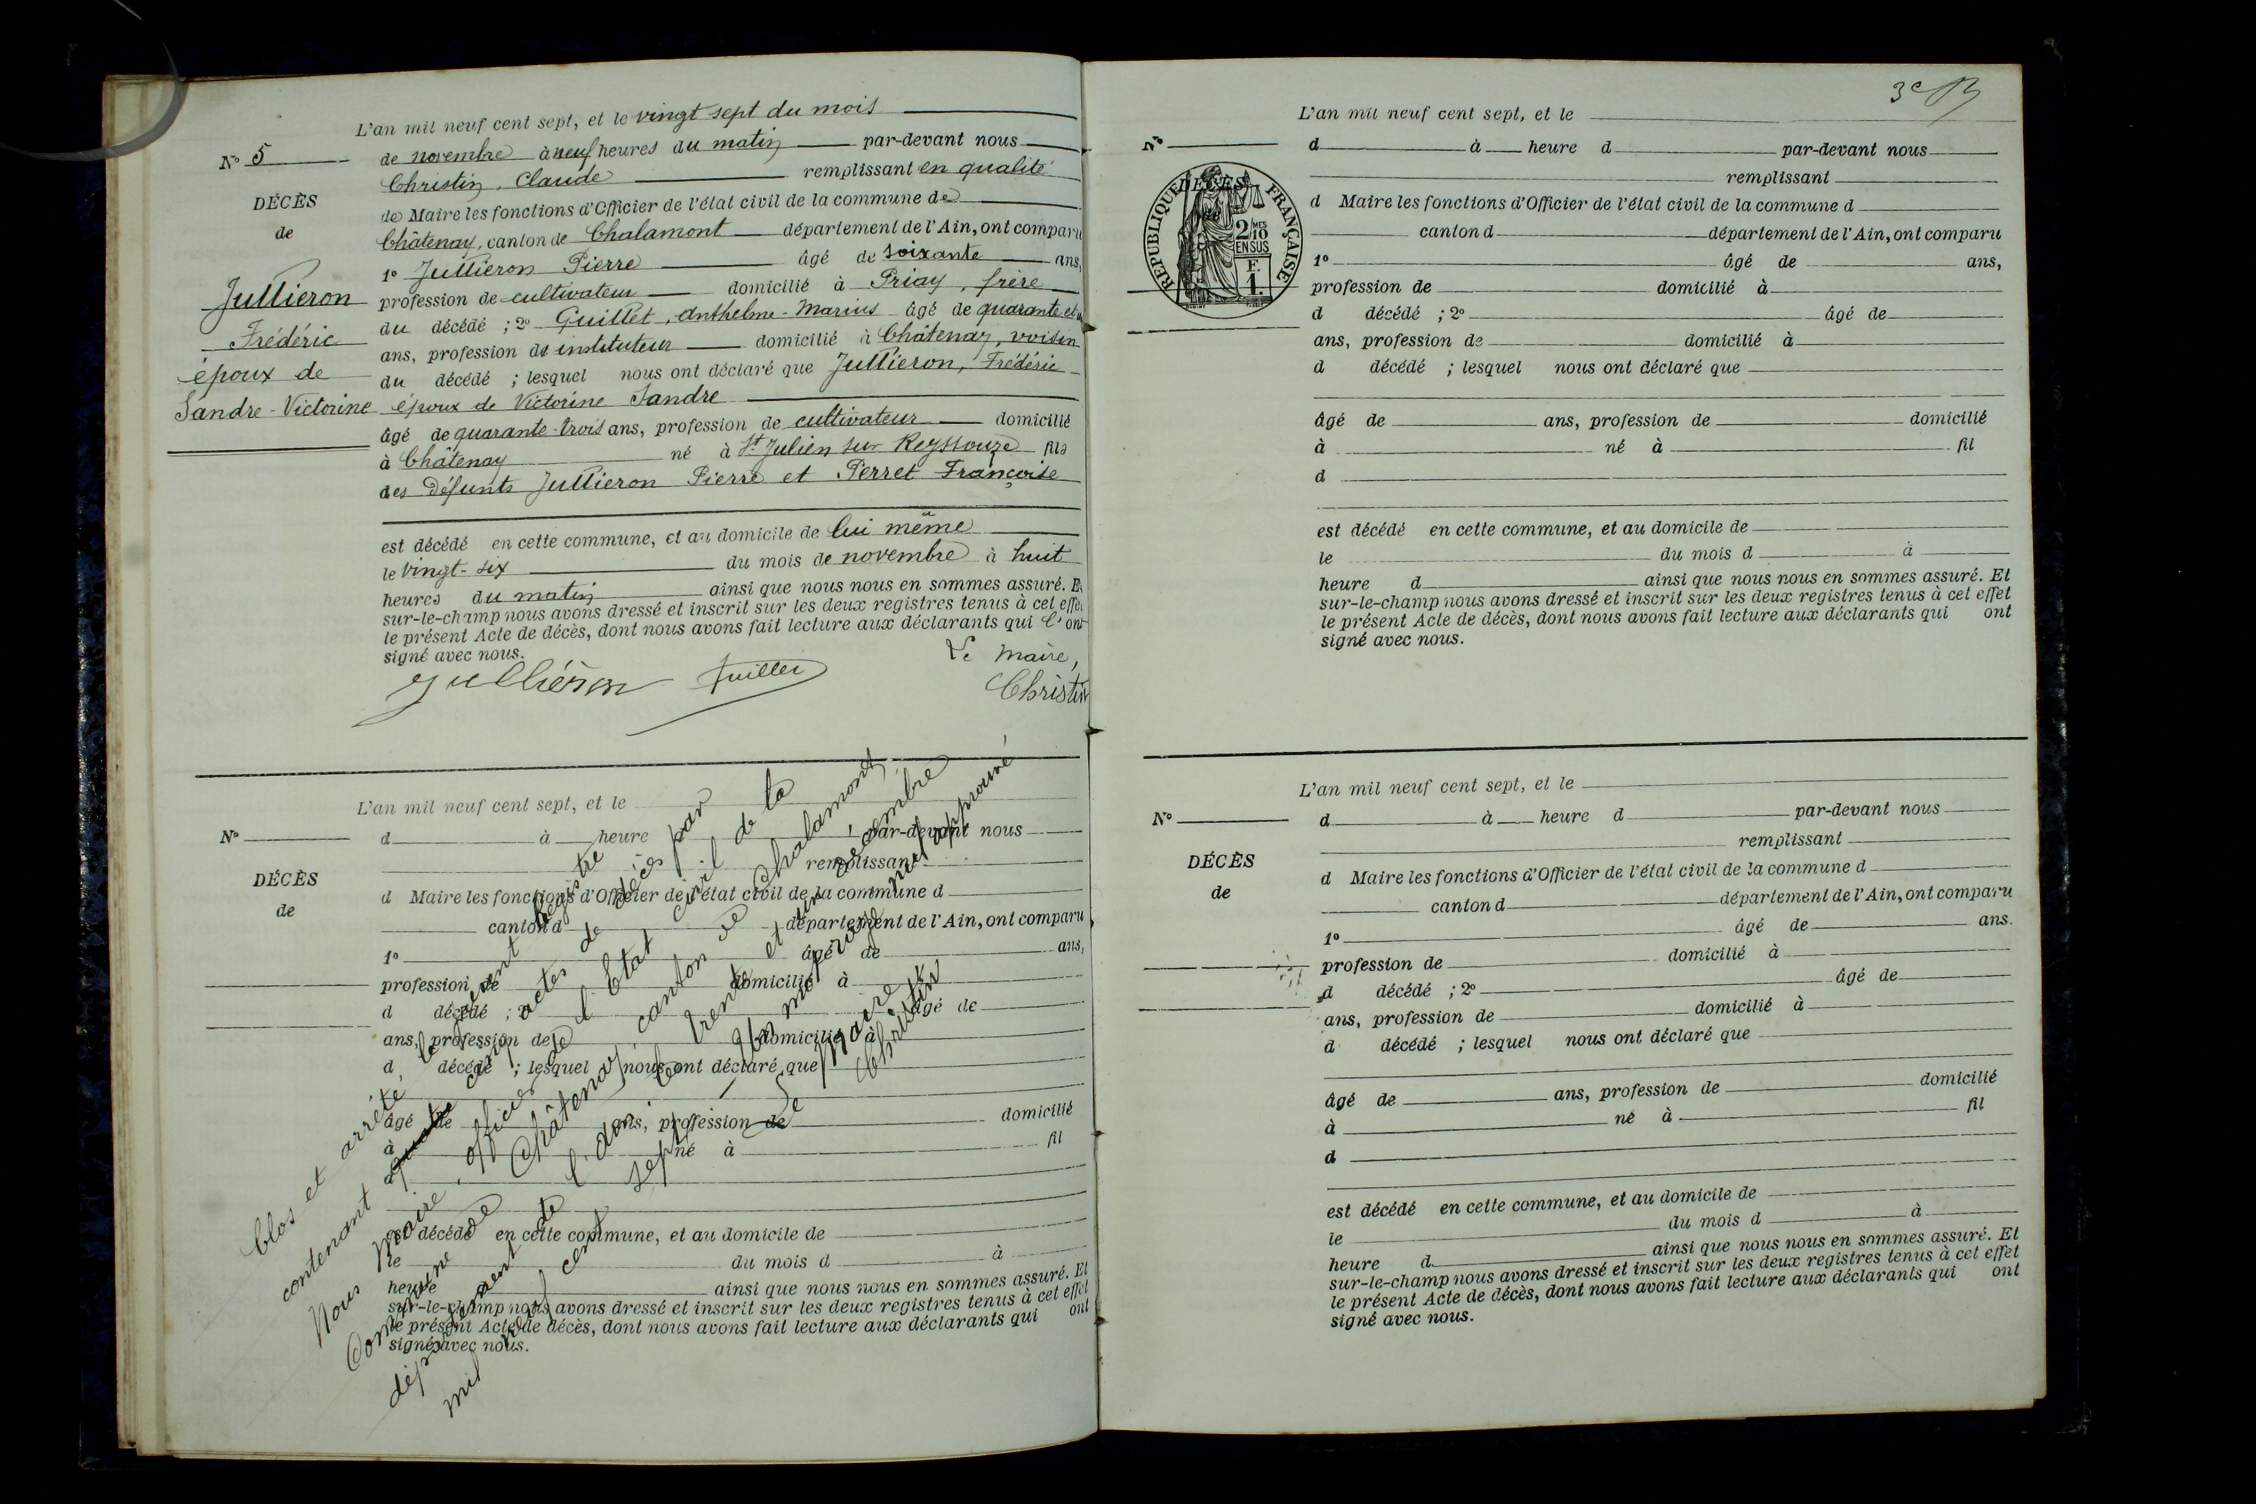 L'an mil neuf cent sept, et le vingt sept du mois
N° 5
de novembre à neuf heures du matin par-devant nous
Christin, Claude remplissant en qualité
DÉCÈS
de Maire les fonctions d'Officier de l'état civil de la commune de
de
Châtenay, canton de Chalamont département de l'Ain, ont comparu
1° Jullieron Pierre âgé de soixante ans,
Jullieron
profession de cultivateur domicilié à Priay, frère
du décédé ; 2° Guillet, Anthelme-Marius âgé de quarante et
Frédéric
ans, profession de instituteur domicilié à Châtenay, voisin
époux de
du décédé ; lesquel nous ont déclaré que Jullieron, Frédéric
Sandre-Victorine
époux de Victorine Sandre
âgé de quarante-trois ans, profession de cultivateur domicilié
à Châtenay né à St Julien sur Reyssouze fils
des défunts Jullieron Pierre et Perret Françoise
est décédé en cette commune, et au domicile de lui même
le vingt-six du mois de novembre à huit
heures du matin ainsi que nous nous en sommes assuré. Et
sur-le-champ nous avons dressé et inscrit sur les deux registres tenus à cet effet
le présent Acte de décès, dont nous avons fait lecture aux déclarants qui l'ont
signé avec nous.
Le Maire,
Jullieron Guillet Christin
L'an mil neuf cent sept, et le
N°
d à heure par-devant nous
remplissant
DÉCÈS
d Maire les fonctions d'Officier de l'état civil de la commune d
de
canton d département de l'Ain, ont comparu
1° âgé de ans,
profession de domicilié à
d décédé ; 2° âgé de
ans, profession de domicilié à
d décédé ; lesquel nous ont déclaré que
âgé de ans, profession de domicilié
à né à fil
d
est décédé en cette commune, et au domicile de
le du mois d à
heure ainsi que nous nous en sommes assuré. Et
sur-le-champ nous avons dressé et inscrit sur les deux registres tenus à cet effet
le présent Acte de décès, dont nous avons fait lecture aux déclarants qui ont
signé avec nous.
Clos et arrêté le présent registre
contenant quatre cinq actes de décès par
Nous Maire, officier de l'Etat civil de la
Commune de Châtenay, canton de Chalamont,
département de l'Ain, le trente et un décembre
mil neuf cent sept. Un mot rayé nul approuvé
Le Maire
Christin
3e
L'an mil neuf cent sept, et le
N°
d à heure d par-devant nous
remplissant
RÉPUBLIQUE FRANÇAISE
DÉCÈS
de
2/10 MES
EN SUS
F.
1.
d Maire les fonctions d'Officier de l'état civil de la commune d
canton d département de l'Ain, ont comparu
1° âgé de ans,
profession de domicilié à
d décédé ; 2° âgé de
ans, profession de domicilié à
d décédé ; lesquel nous ont déclaré que
âgé de ans, profession de domicilié
à né à fil
d
est décédé en cette commune, et au domicile de
le du mois d à
heure d ainsi que nous nous en sommes assuré. Et
sur-le-champ nous avons dressé et inscrit sur les deux registres tenus à cet effet
le présent Acte de décès, dont nous avons fait lecture aux déclarants qui ont
signé avec nous.
L'an mil neuf cent sept, et le
N°
d à heure d par-devant nous
remplissant
DÉCÈS
d Maire les fonctions d'Officier de l'état civil de la commune d
de
canton d département de l'Ain, ont comparu
1° âgé de ans.
profession de domicilié à
d décédé ; 2° âgé de
ans, profession de domicilié à
d décédé ; lesquel nous ont déclaré que
âgé de ans, profession de domicilié
à né à fil
d
est décédé en cette commune, et au domicile de
le du mois d à
heure d ainsi que nous nous en sommes assuré. Et
sur-le-champ nous avons dressé et inscrit sur les deux registres tenus à cet effet
le présent Acte de décès, dont nous avons fait lecture aux déclarants qui ont
signé avec nous.